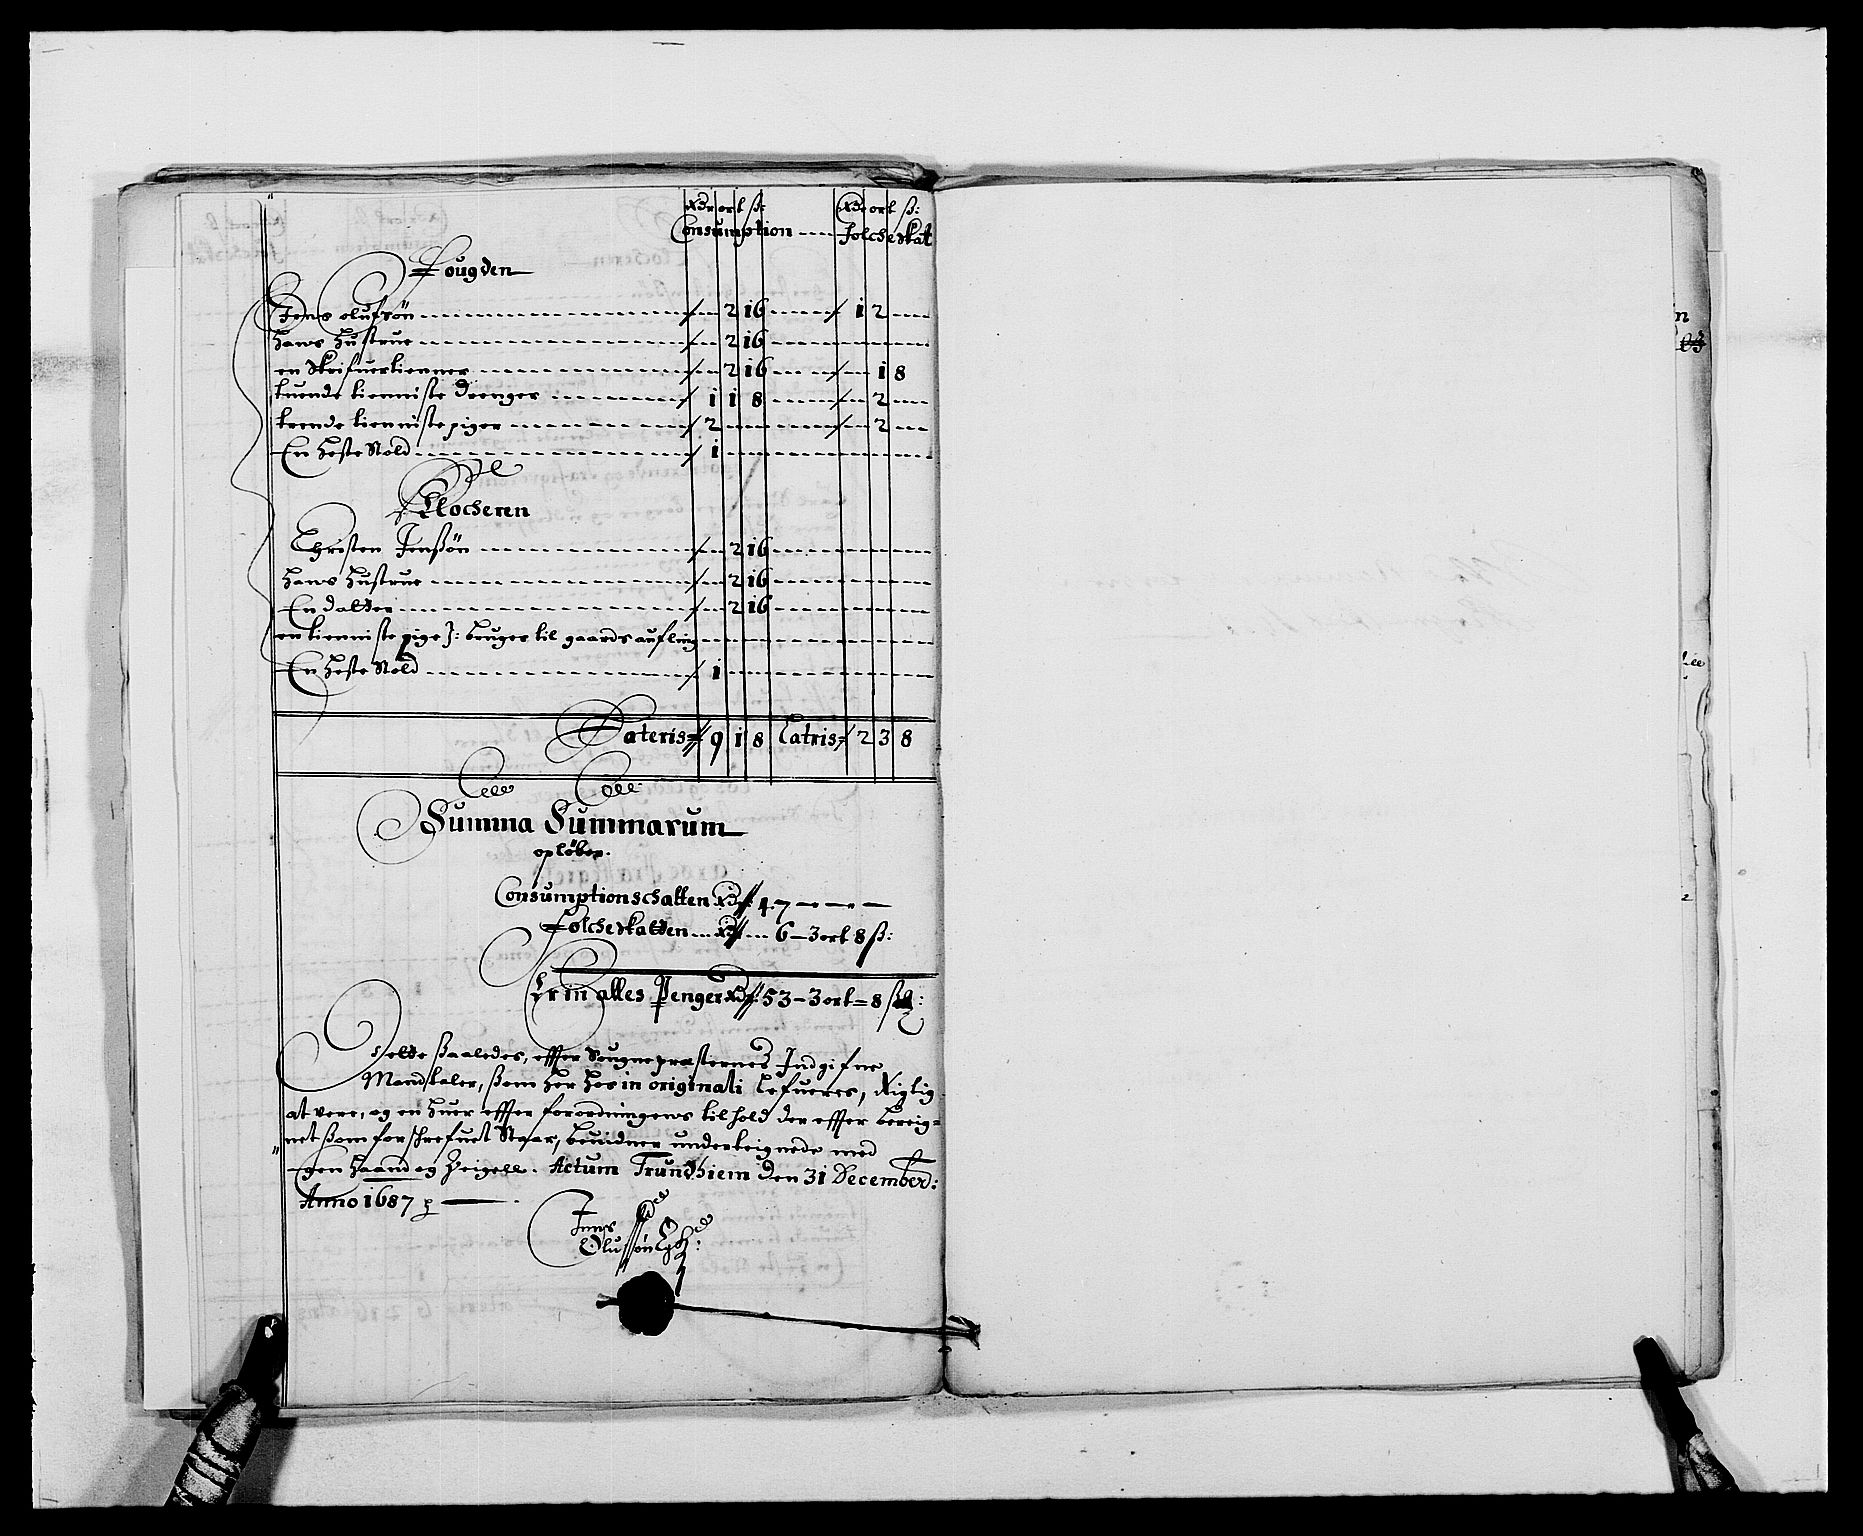 Rdr ort ß: Rdr ort ß:
Consumption Folcheskat
Fougden
Jens olufsön 2 16 1 2
hans hustrue 2 16
en Skrifuertienner 2 16 1 8
tuende tienniste drenger 1 1 8 2
trende tienniste piger 2 2
En heste Stold 1
Klocheren
Christen Jenßön 2 16
hans hustrue 2 16
En datter 2 16
en tienniste pige J: bruges til gaards aufling
En heste Stold 1
Lateris 9 1 8 Latris 2 3 8
Summa Summarum
opløber.
Consumptionschatten Rdr 47
Folcheskatten Rdr 6 – 3 ort 8 ß:
Er in alles Penger Rdr 53 – 3 ort = 8 ß:
dette ßaaledes, effter Sougnepræsternes Indgifne
Mandtaler, ßom her hos in originali lefueres, Rigtig
at vere, og en huer effter forordningens tilhold der effter bereig=
net ßom forschrefuet Staar, beuidner underteignede med
Egen haand og Zeigell. Actum Trundhiem den 31 December:
Anno 1687
Jens
Olufsön